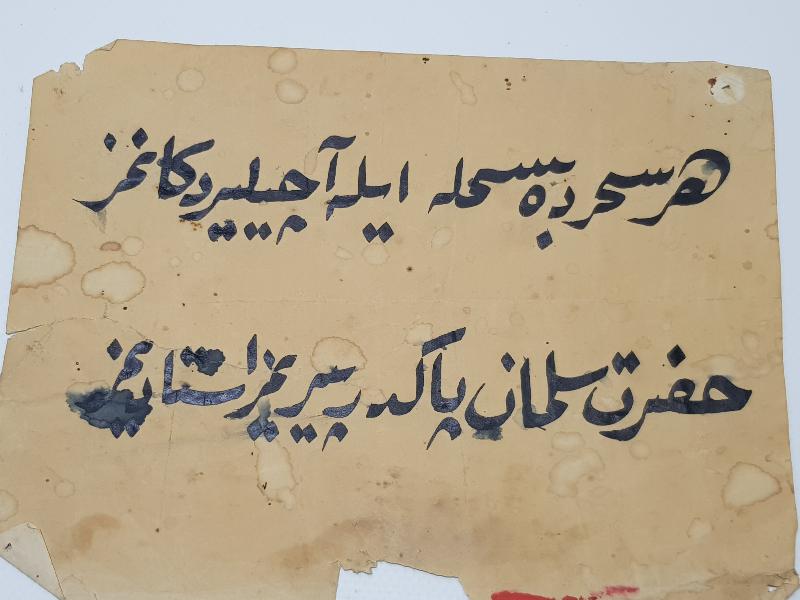 هر سحرده بسمله ایله آچیلیر دکانمز
حضرت سلمان پاکدر پیریمز استادیمز